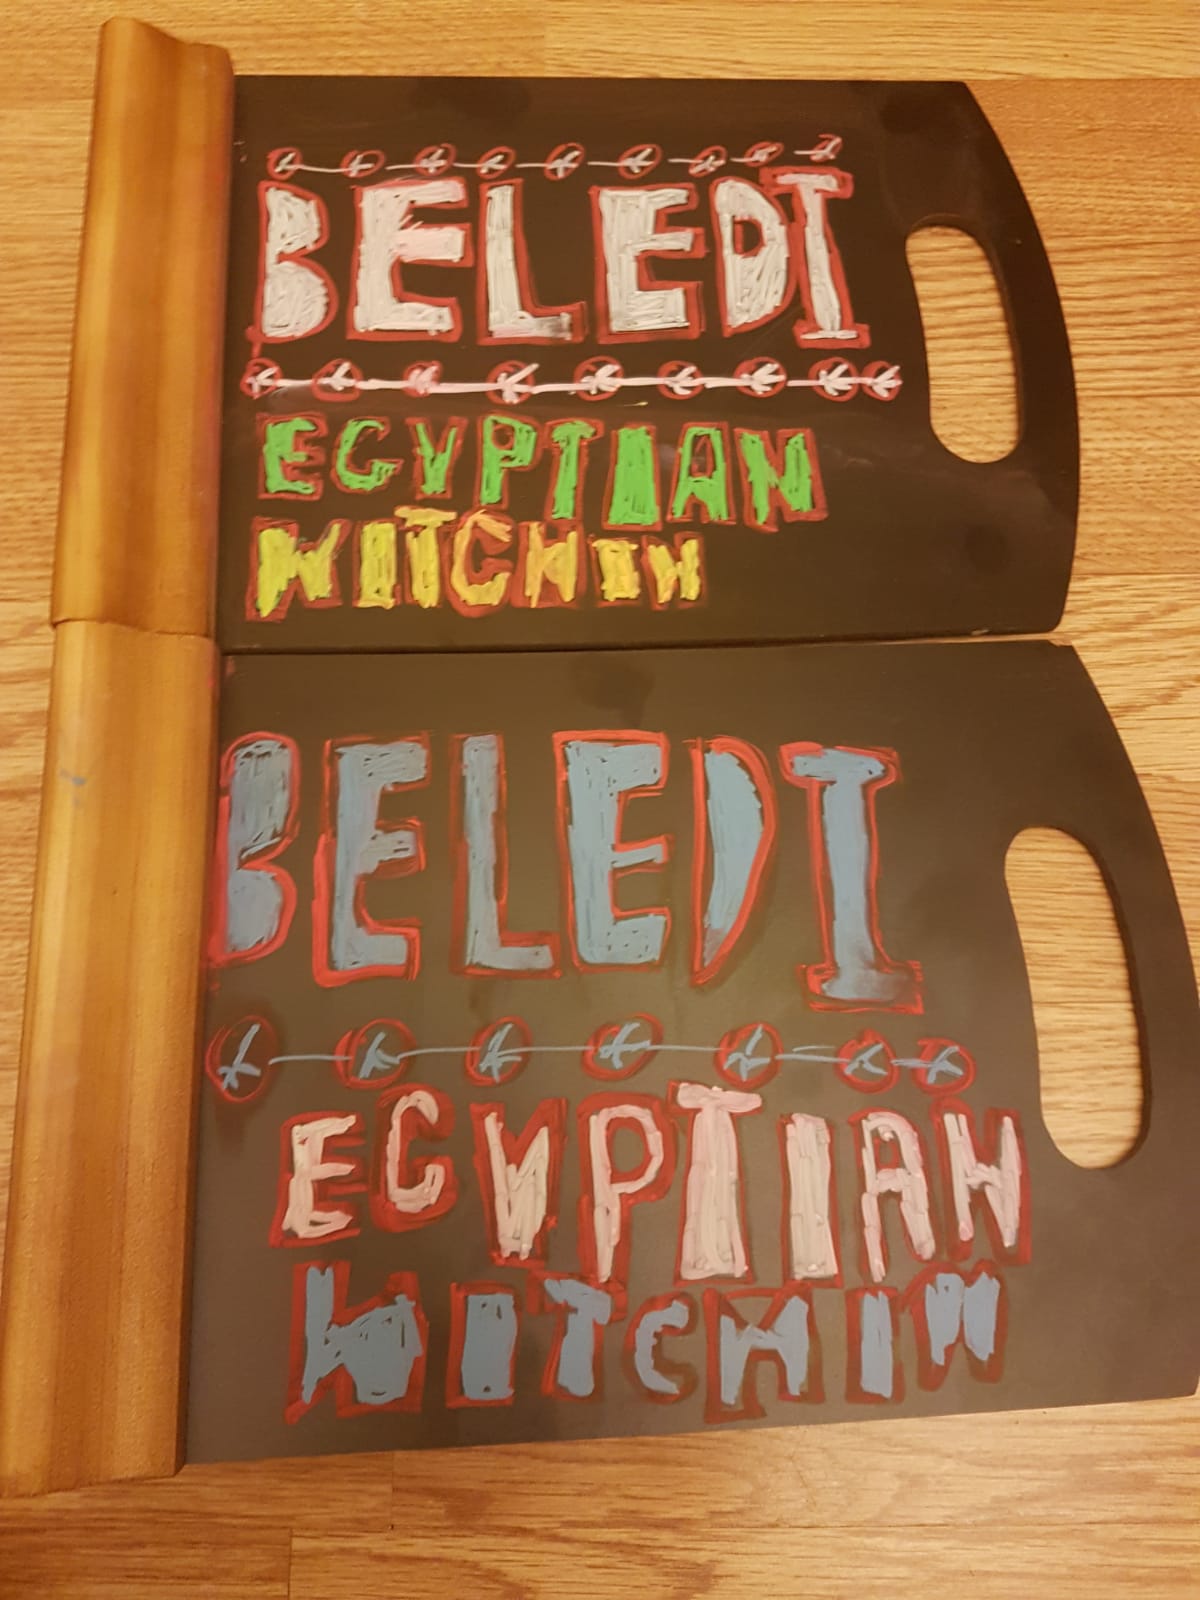 BELEDI
EGYPTIAN
WITCHIN
BELEDI
EGYPTIAN
WITCHIN